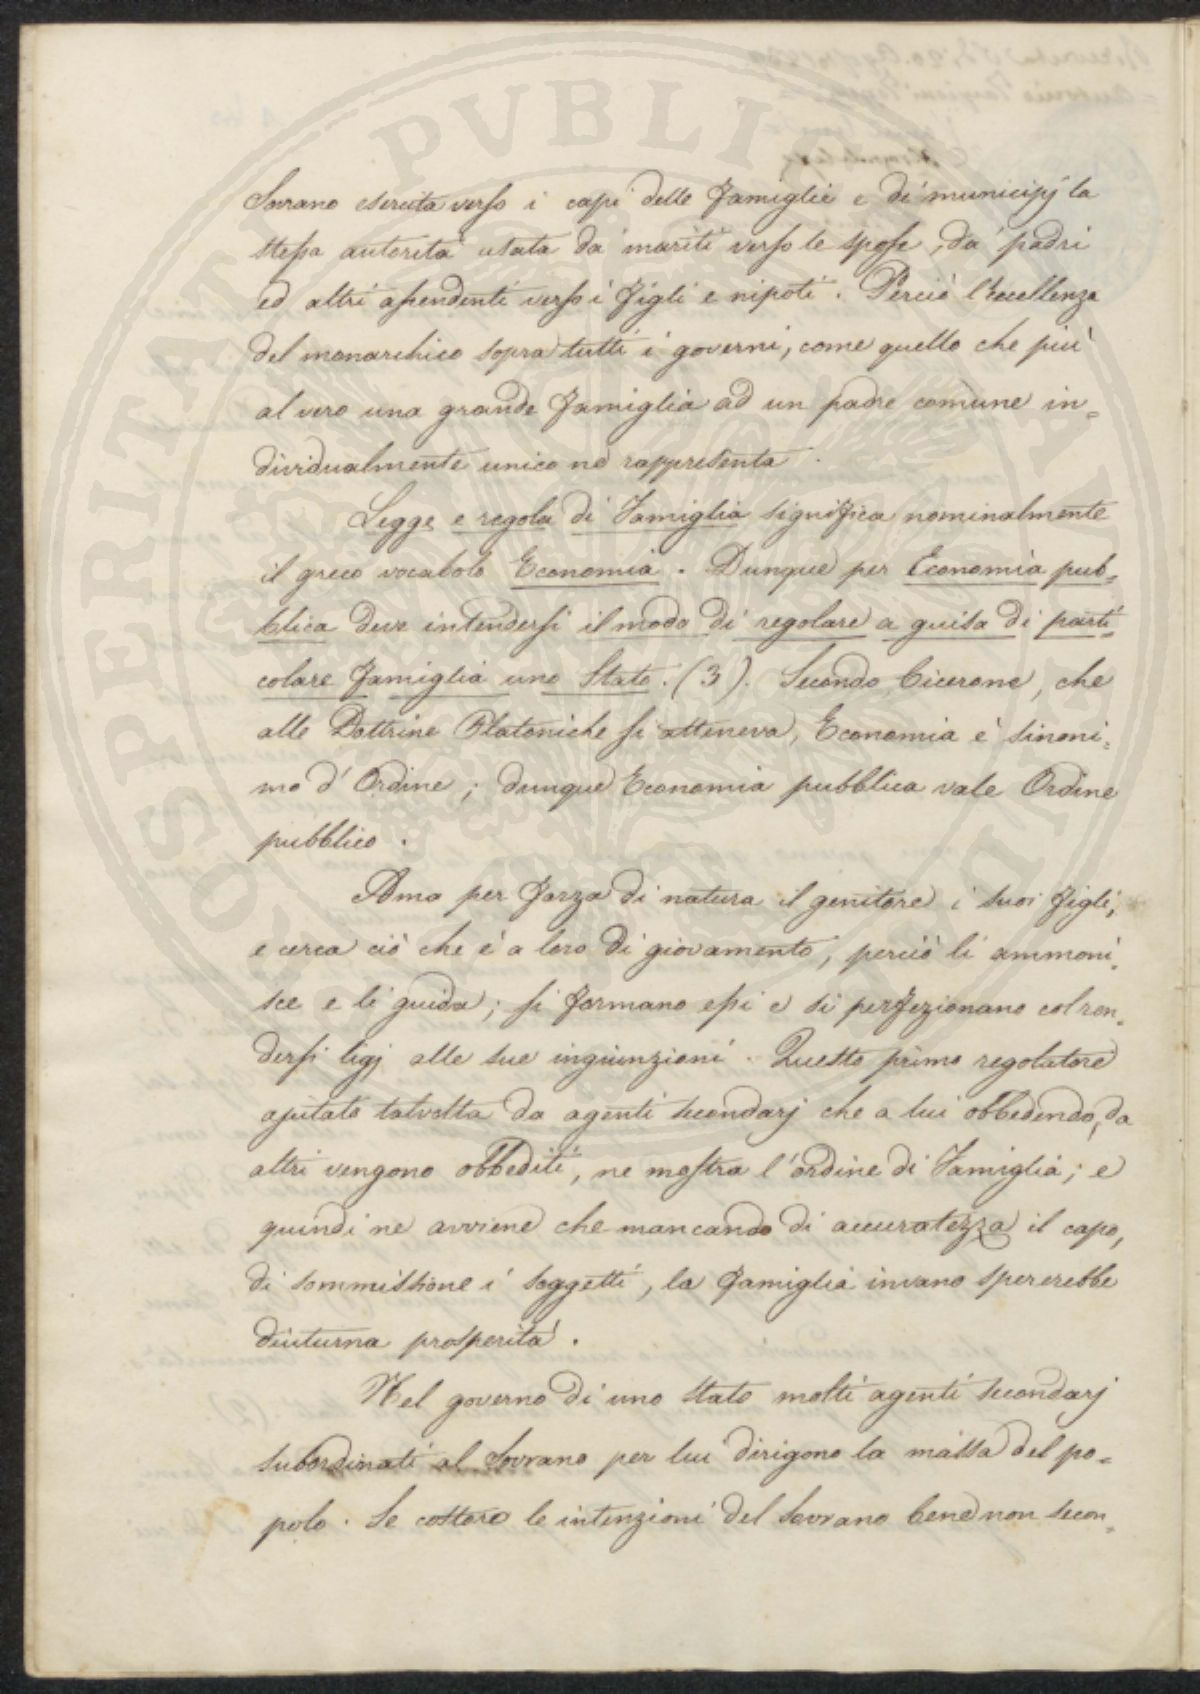 Sovrano esercita verso i capi delle Famiglie e di municipj la
stessa autorità usata da' mariti verso le spose, da' padri
ed altri ascendenti verso i Figli e nipoti. Perciò l'eccellenza
del monarchico sopra tutti i governi, come quello che più
al vero una grande Famiglia ad un padre comune in=
dividualmente unico ne rappresenta.
Legge e regola di Famiglia significa nominalmente
il greco vocabolo Economia. Dunque per Economia pub=
blica deve intendersi il modo di regolare a guisa di parti=
colare Famiglia uno Stato. (3). Secondo Cicerone, che
alle Dottrine Platoniche si atteneva, Economia è sinoni=
mo d'Ordine; dunque Economia pubblica vale Ordine
pubblico.
Ama per Forza di natura il genitore i suoi Figli,
e cerca ciò che è a loro di giovamento, perciò li ammoni=
sce e li guida; si Formano essi e si perfezionano col ren=
dersi ligj alle sue ingiunzioni. Questo primo regolatore
ajutato talvolta da agenti secondarj che a lui obbedendo, da
altri vengono obbediti, ne mostra l'ordine di Famiglia; e
quindi ne avviene che mancando di accuratezza il capo,
di sommissione i soggetti, la Famiglia invano spererebbe
diuturna prosperità.
Nel governo di uno Stato molti agenti secondarj
subordinati al Sovrano per lui dirigono la massa del po=
polo. Se costoro le intenzioni del Sovrano bene non secon=
PVBLI
PROSPERITATI